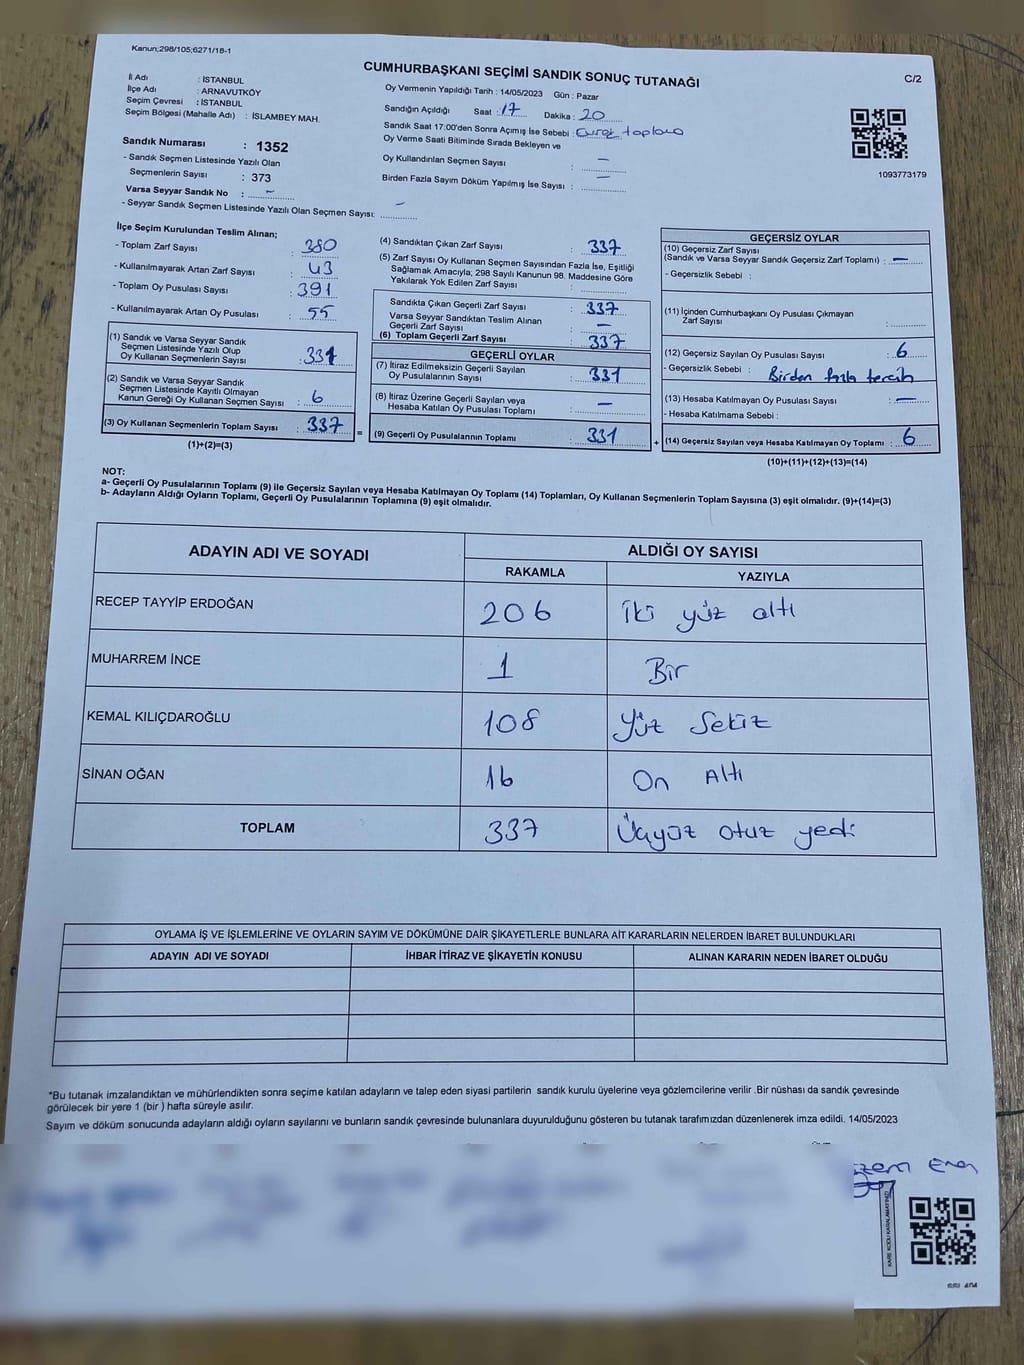 Kanun;298/105;6271/18-1
CUMHURBAŞKANI SEÇİMİ SANDIK SONUÇ TUTANAĞI
C/2
İl Adı : İSTANBUL
İlçe Adı : ARNAVUTKÖY
Seçim Çevresi : İSTANBUL
Seçim Bölgesi (Mahalle Adı) : İSLAMBEY MAH.
Oy Vermenin Yapıldığı Tarih : 14/05/2023 Gün : Pazar
Sandığın Açıldığı Saat : 17 Dakika : 20
Sandık Saat 17:00'den Sonra Açımış İse Sebebi : Evrak toplama
Oy Verme Saati Bitiminde Sırada Bekleyen ve
Oy Kullandırılan Seçmen Sayısı : —
Birden Fazla Sayım Döküm Yapılmış İse Sayısı : —
1093773179
Sandık Numarası : 1352
- Sandık Seçmen Listesinde Yazılı Olan
Seçmenlerin Sayısı : 373
Varsa Seyyar Sandık No : -
- Seyyar Sandık Seçmen Listesinde Yazılı Olan Seçmen Sayısı: -
İlçe Seçim Kurulundan Teslim Alınan;
- Toplam Zarf Sayısı : 380
- Kullanılmayarak Artan Zarf Sayısı : 43
- Toplam Oy Pusulası Sayısı : 391
- Kullanılmayarak Artan Oy Pusulası : 55
(1) Sandık ve Varsa Seyyar Sandık
Seçmen Listesinde Yazılı Olup
Oy Kullanan Seçmenlerin Sayısı : 331
(2) Sandık ve Varsa Seyyar Sandık
Seçmen Listesinde Kayıtlı Olmayan
Kanun Gereği Oy Kullanan Seçmen Sayısı : 6
(3) Oy Kullanan Seçmenlerin Toplam Sayısı : 337
(1)+(2)=(3)
(4) Sandıktan Çıkan Zarf Sayısı : 337
(5) Zarf Sayısı Oy Kullanan Seçmen Sayısından Fazla İse, Eşitliği
Sağlamak Amacıyla; 298 Sayılı Kanunun 98. Maddesine Göre
Yakılarak Yok Edilen Zarf Sayısı :
Sandıkta Çıkan Geçerli Zarf Sayısı : 337
Varsa Seyyar Sandıktan Teslim Alınan
Geçerli Zarf Sayısı : —
(6) Toplam Geçerli Zarf Sayısı : 337
GEÇERLİ OYLAR
(7) İtiraz Edilmeksizin Geçerli Sayılan
Oy Pusulalarının Sayısı : 331
(8) İtiraz Üzerine Geçerli Sayılan veya
Hesaba Katılan Oy Pusulası Toplamı : —
= (9) Geçerli Oy Pusulalarının Toplamı : 331 +
GEÇERSİZ OYLAR
(10) Geçersiz Zarf Sayısı
(Sandık ve Varsa Seyyar Sandık Geçersiz Zarf Toplamı) : —
- Geçersizlik Sebebi :
(11) İçinden Cumhurbaşkanı Oy Pusulası Çıkmayan
Zarf Sayısı :
(12) Geçersiz Sayılan Oy Pusulası Sayısı : 6
- Geçersizlik Sebebi : Birden fazla tercih
(13) Hesaba Katılmayan Oy Pusulası Sayısı : —
- Hesaba Katılmama Sebebi :
(14) Geçersiz Sayılan veya Hesaba Katılmayan Oy Toplamı : 6
(10)+(11)+(12)+(13)=(14)
NOT:
a- Geçerli Oy Pusulalarının Toplamı (9) ile Geçersiz Sayılan veya Hesaba Katılmayan Oy Toplamı (14) Toplamları, Oy Kullanan Seçmenlerin Toplam Sayısına (3) eşit olmalıdır. (9)+(14)=(3)
b- Adayların Aldığı Oyların Toplamı, Geçerli Oy Pusulalarının Toplamına (9) eşit olmalıdır.
ADAYIN ADI VE SOYADI ALDIĞI OY SAYISI
RAKAMLA YAZIYLA
RECEP TAYYİP ERDOĞAN 206 İki yüz altı
MUHARREM İNCE 1 Bir
KEMAL KILIÇDAROĞLU 108 Yüz Sekiz
SİNAN OĞAN 16 On Altı
TOPLAM 337 Üçyüz otuz yedi
OYLAMA İŞ VE İŞLEMLERİNE VE OYLARIN SAYIM VE DÖKÜMÜNE DAİR ŞİKAYETLERLE BUNLARA AİT KARARLARIN NELERDEN İBARET BULUNDUKLARI
ADAYIN ADI VE SOYADI İHBAR İTİRAZ VE ŞİKAYETİN KONUSU ALINAN KARARIN NEDEN İBARET OLDUĞU
*Bu tutanak imzalandıktan ve mühürlendikten sonra seçime katılan adayların ve talep eden siyasi partilerin sandık kurulu üyelerine veya gözlemcilerine verilir .Bir nüshası da sandık çevresinde
görülecek bir yere 1 (bir ) hafta süreyle asılır.
Sayım ve döküm sonucunda adayların aldığı oyların sayılarını ve bunların sandık çevresinde bulunanlara duyurulduğunu gösteren bu tutanak tarafımızdan düzenlenerek imza edildi. 14/05/2023
KARE KODU KARALAMAYINIZ!